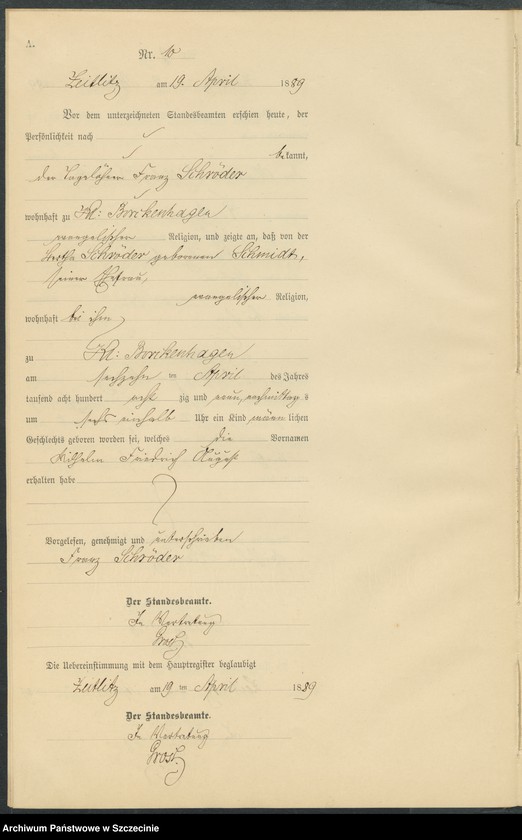 A.
Nr. 10
Zeitlitz am 19. April 1889
Vor dem unterzeichneten Standesbeamten erschien heute, der
Persönlichkeit nach
bekannt,
der Tagelöhner Franz Schröder
wohnhaft zu Kl: Borckenhagen
evangelischen Religion, und zeigte an, daß von der
Bertha Schröder geborenen Schmidt,
seiner Ehefrau,
evangelischen Religion,
wohnhaft bei ihm
zu Kl: Borckenhagen
am sechzehn ten April des Jahres
tausend acht hundert acht zig und neun, nachmittag s
um sechs einhalb Uhr ein Kind männ lichen
Geschlechts geboren worden sei, welches die Vornamen
Wilhelm Friedrich August
erhalten habe
Vorgelesen, genehmigt und unterschrieben
Franz Schröder
Der Standesbeamte.
In Vertretung
Die Uebereinstimmung mit dem Hauptregister beglaubigt
Zeitlitz am 19 ten April 1889
Der Standesbeamte.
In Vertretung
Archiwum Państwowe w Szczecinie